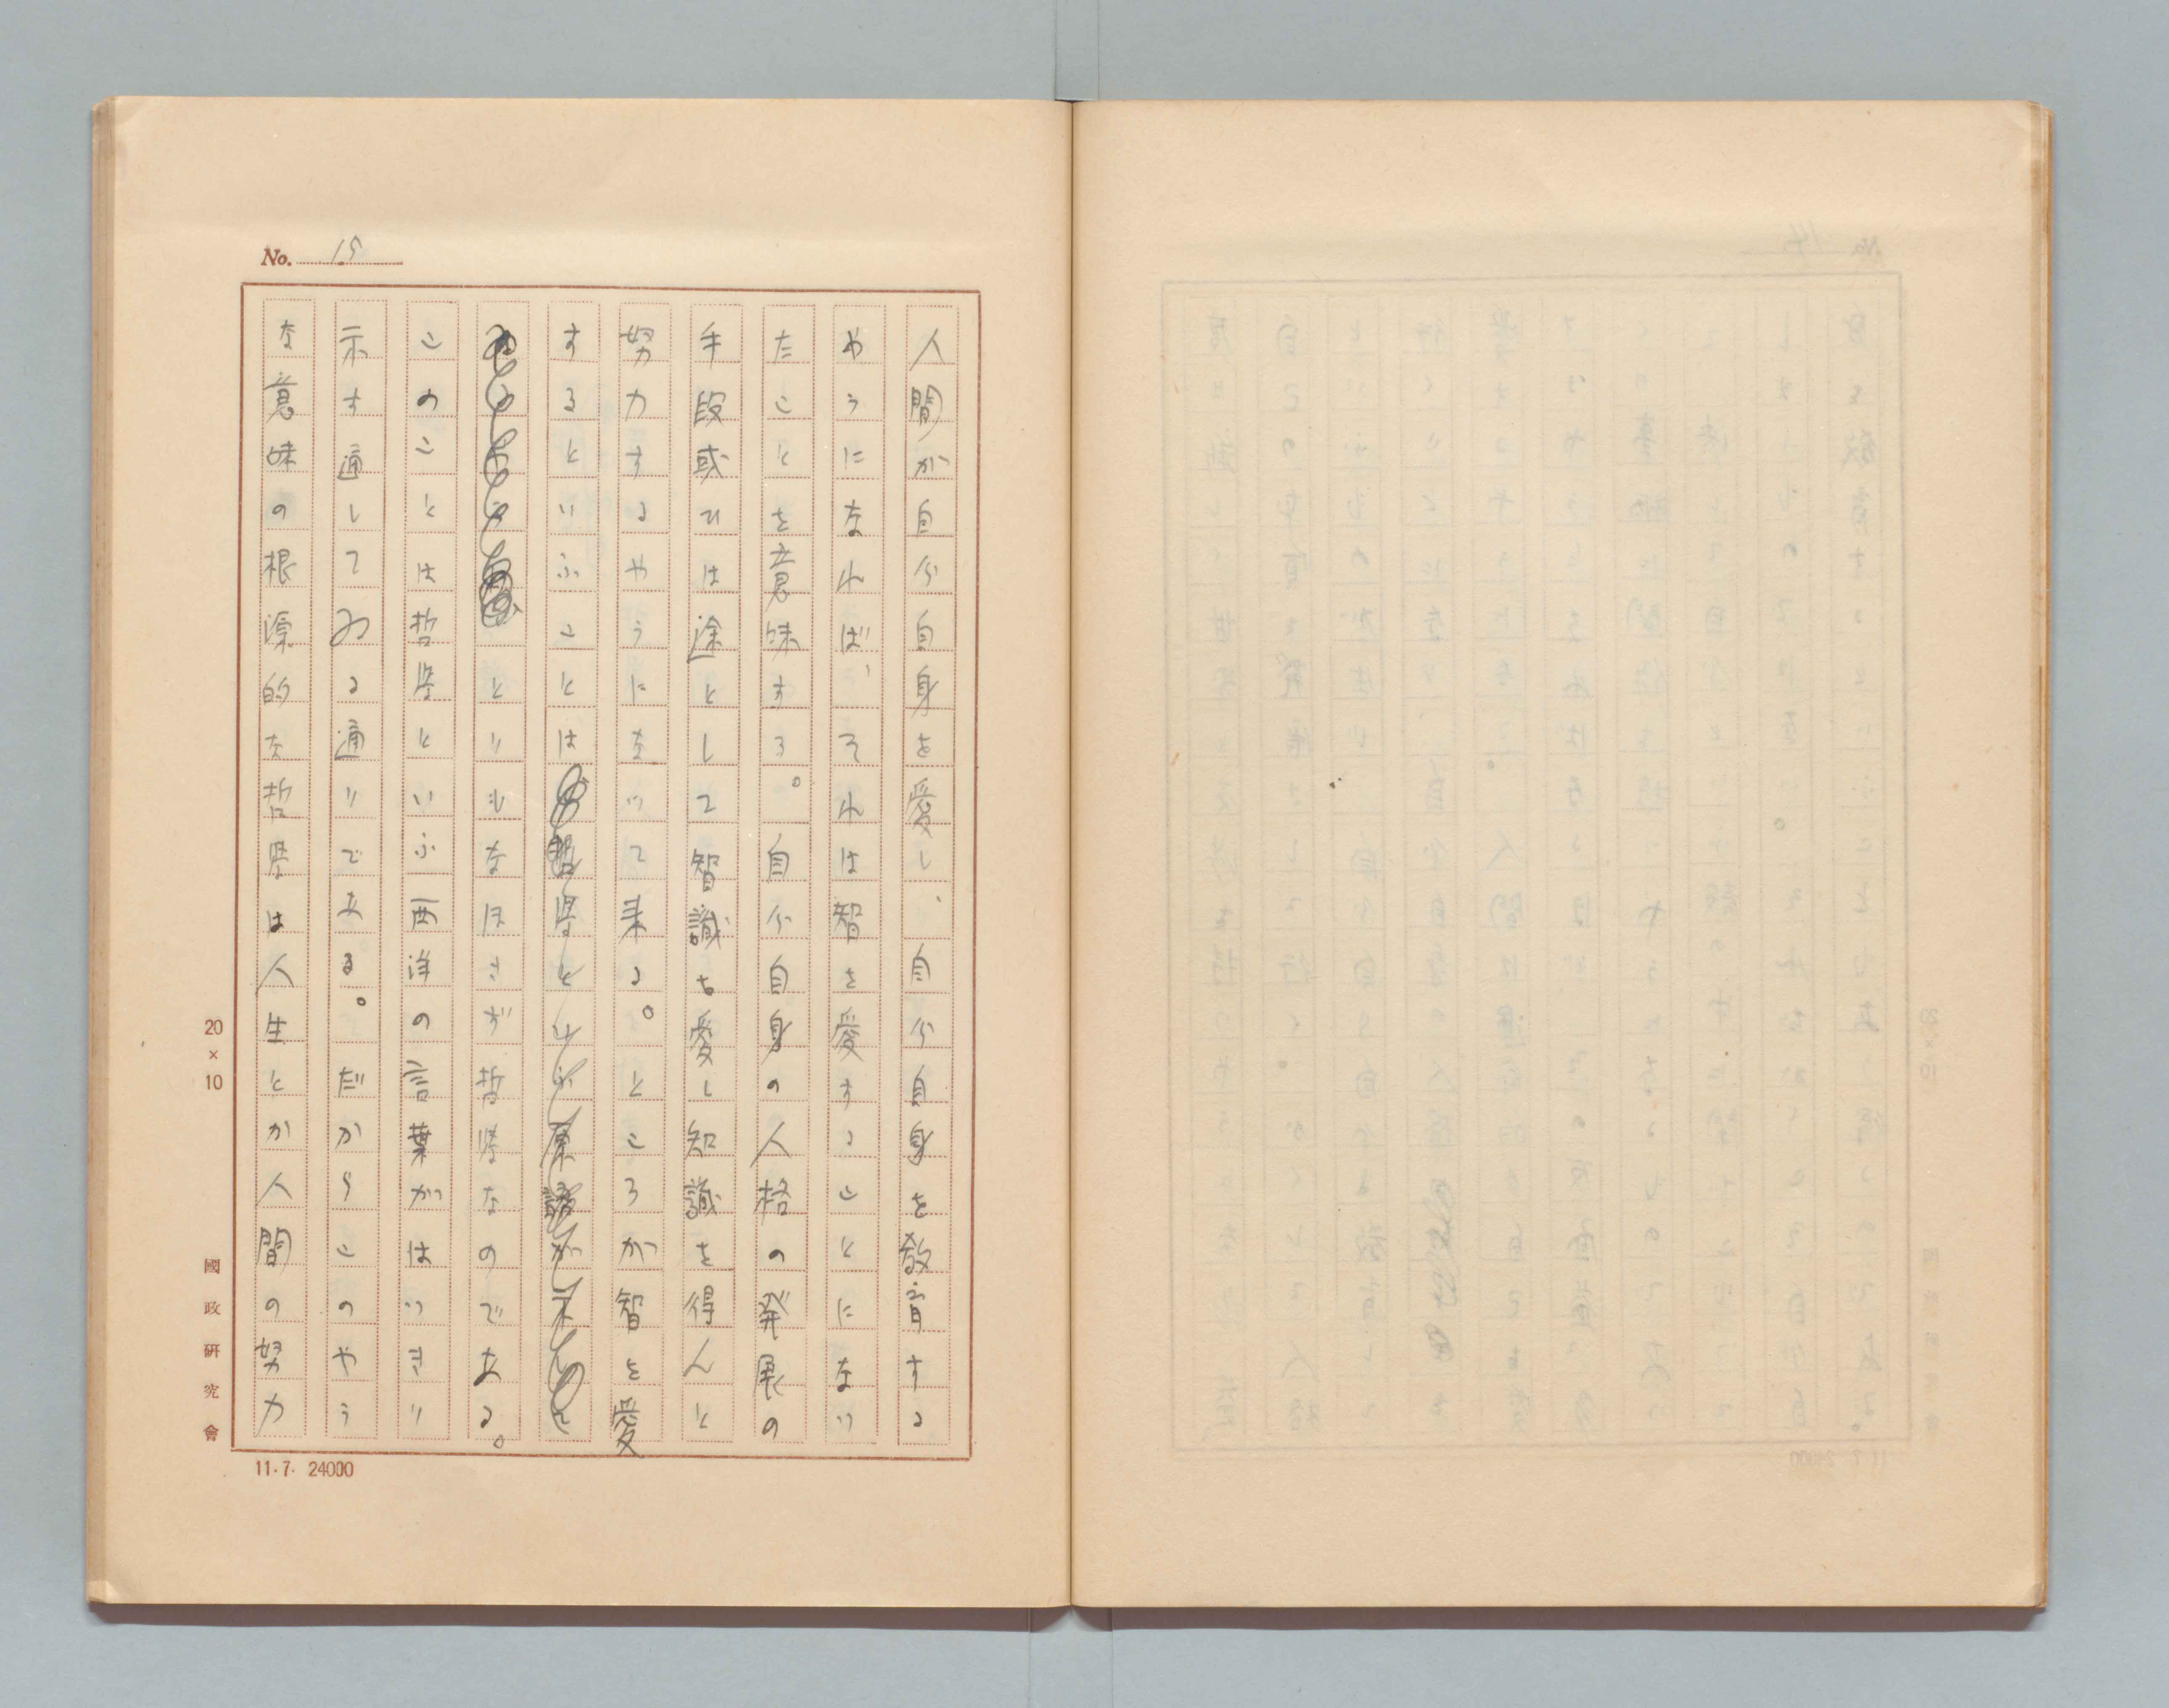 No. 15
人間が自分自身を愛し、自分自身を教育する
やうになれば、それは智を愛することになつ
たことを意味する。自分自身の人格の発展の
手段或ひは途として智識を愛し知識を得んと
努力するやうになつて来る。ところが智を愛
するといふことは哲学といふ原語が示して
とりもなほさず哲学なのである。
このことは哲学といふ西洋の言葉がはつきり
示す通してゐる通りである。だからこのやう
な意味の根源的な哲学は人生とか人間の努力
20×10
國政研究會
11.7. 24000